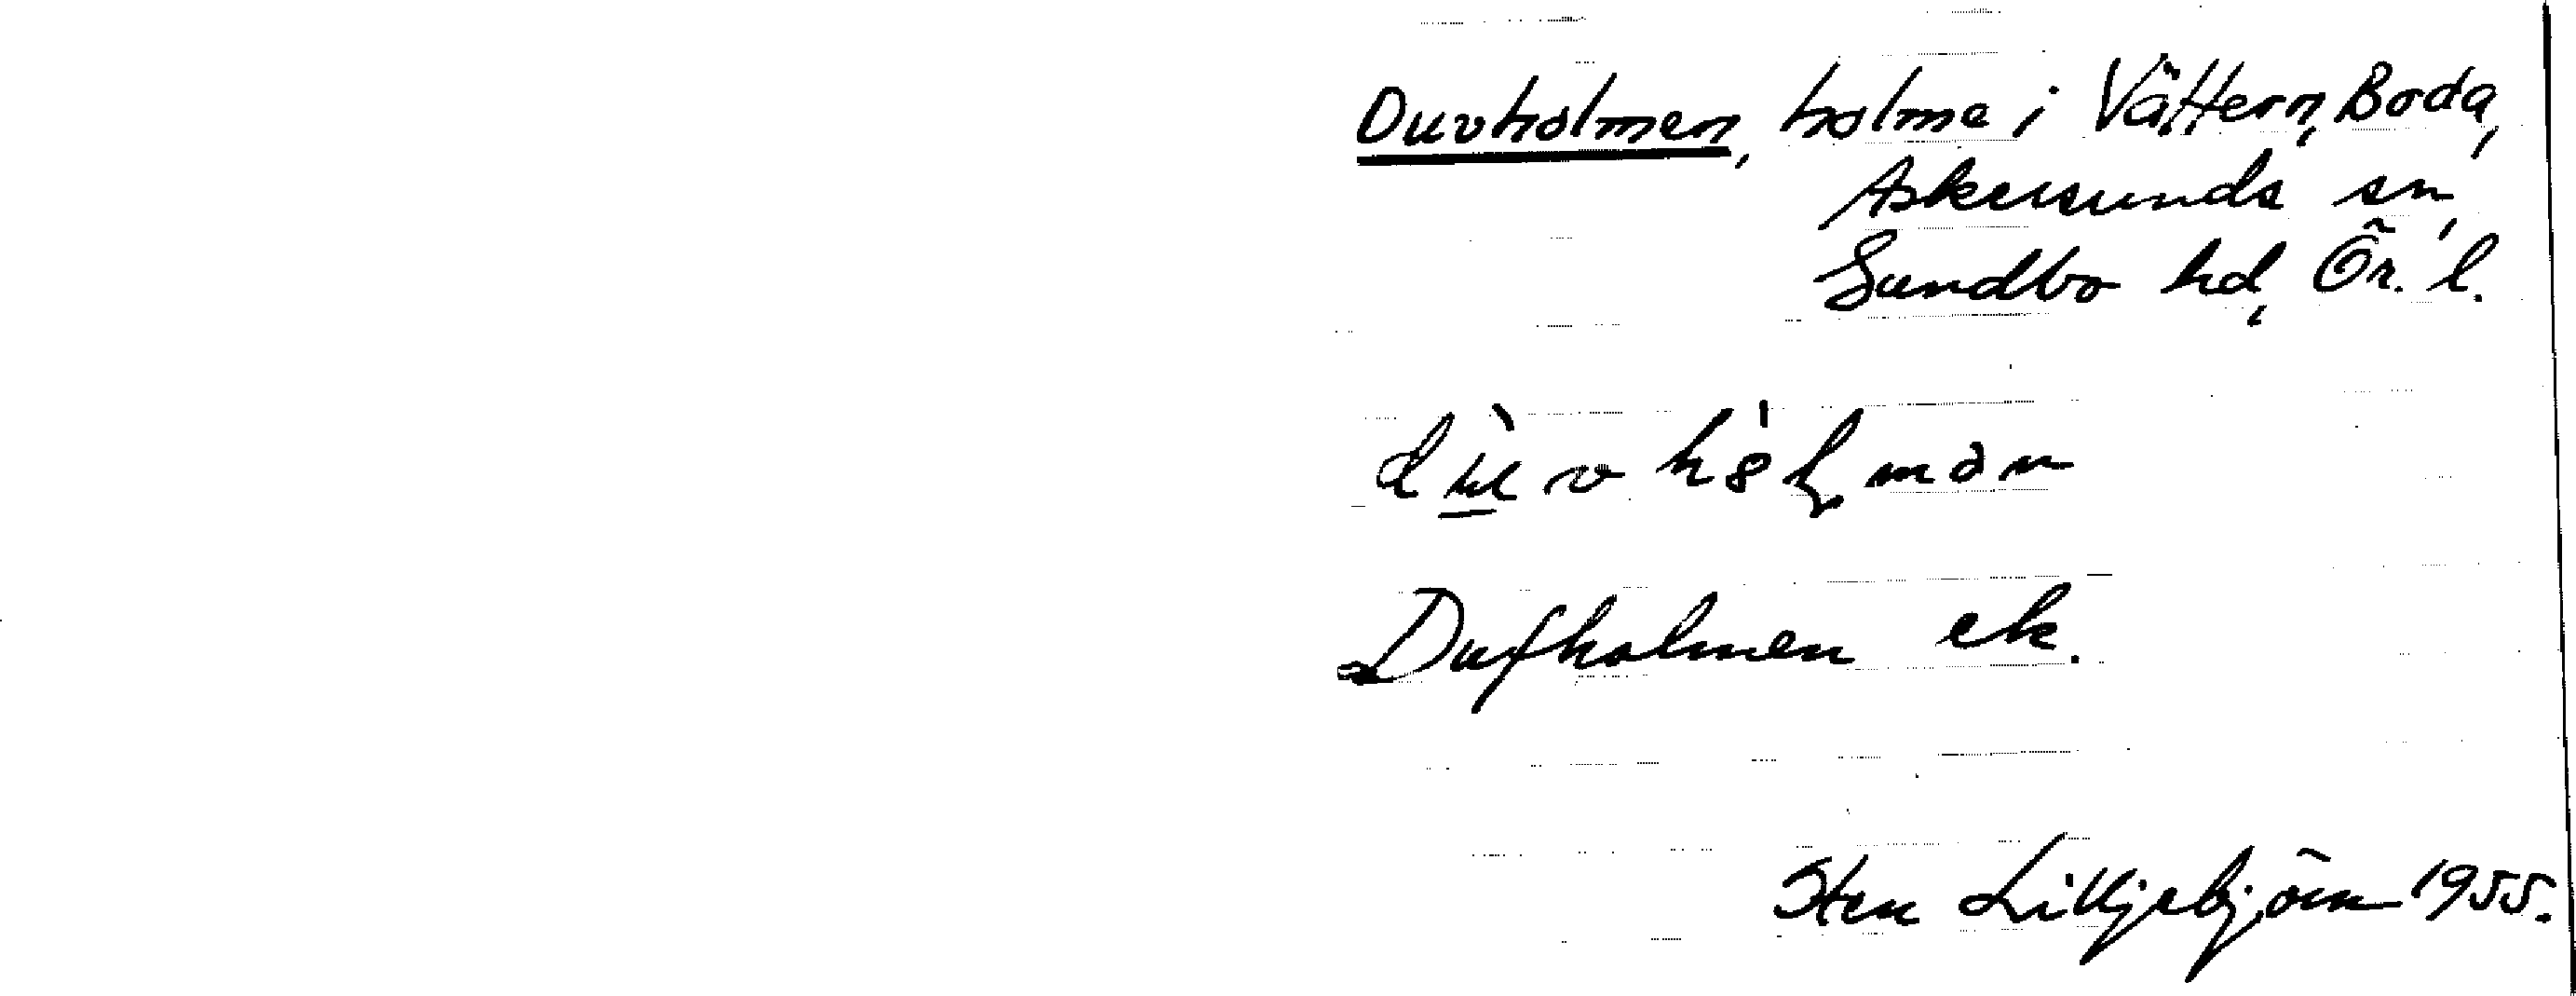 Duvholmen, holme i Vättern, Boda,
Askersunds sn,
Sundbo hd, Ör. l.
Dufholmen ek.
Sten Lilljebjörn 1955.